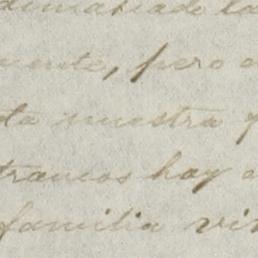 demasiado la
uente, pero
ta muestra y
tramos hay a
familia vi